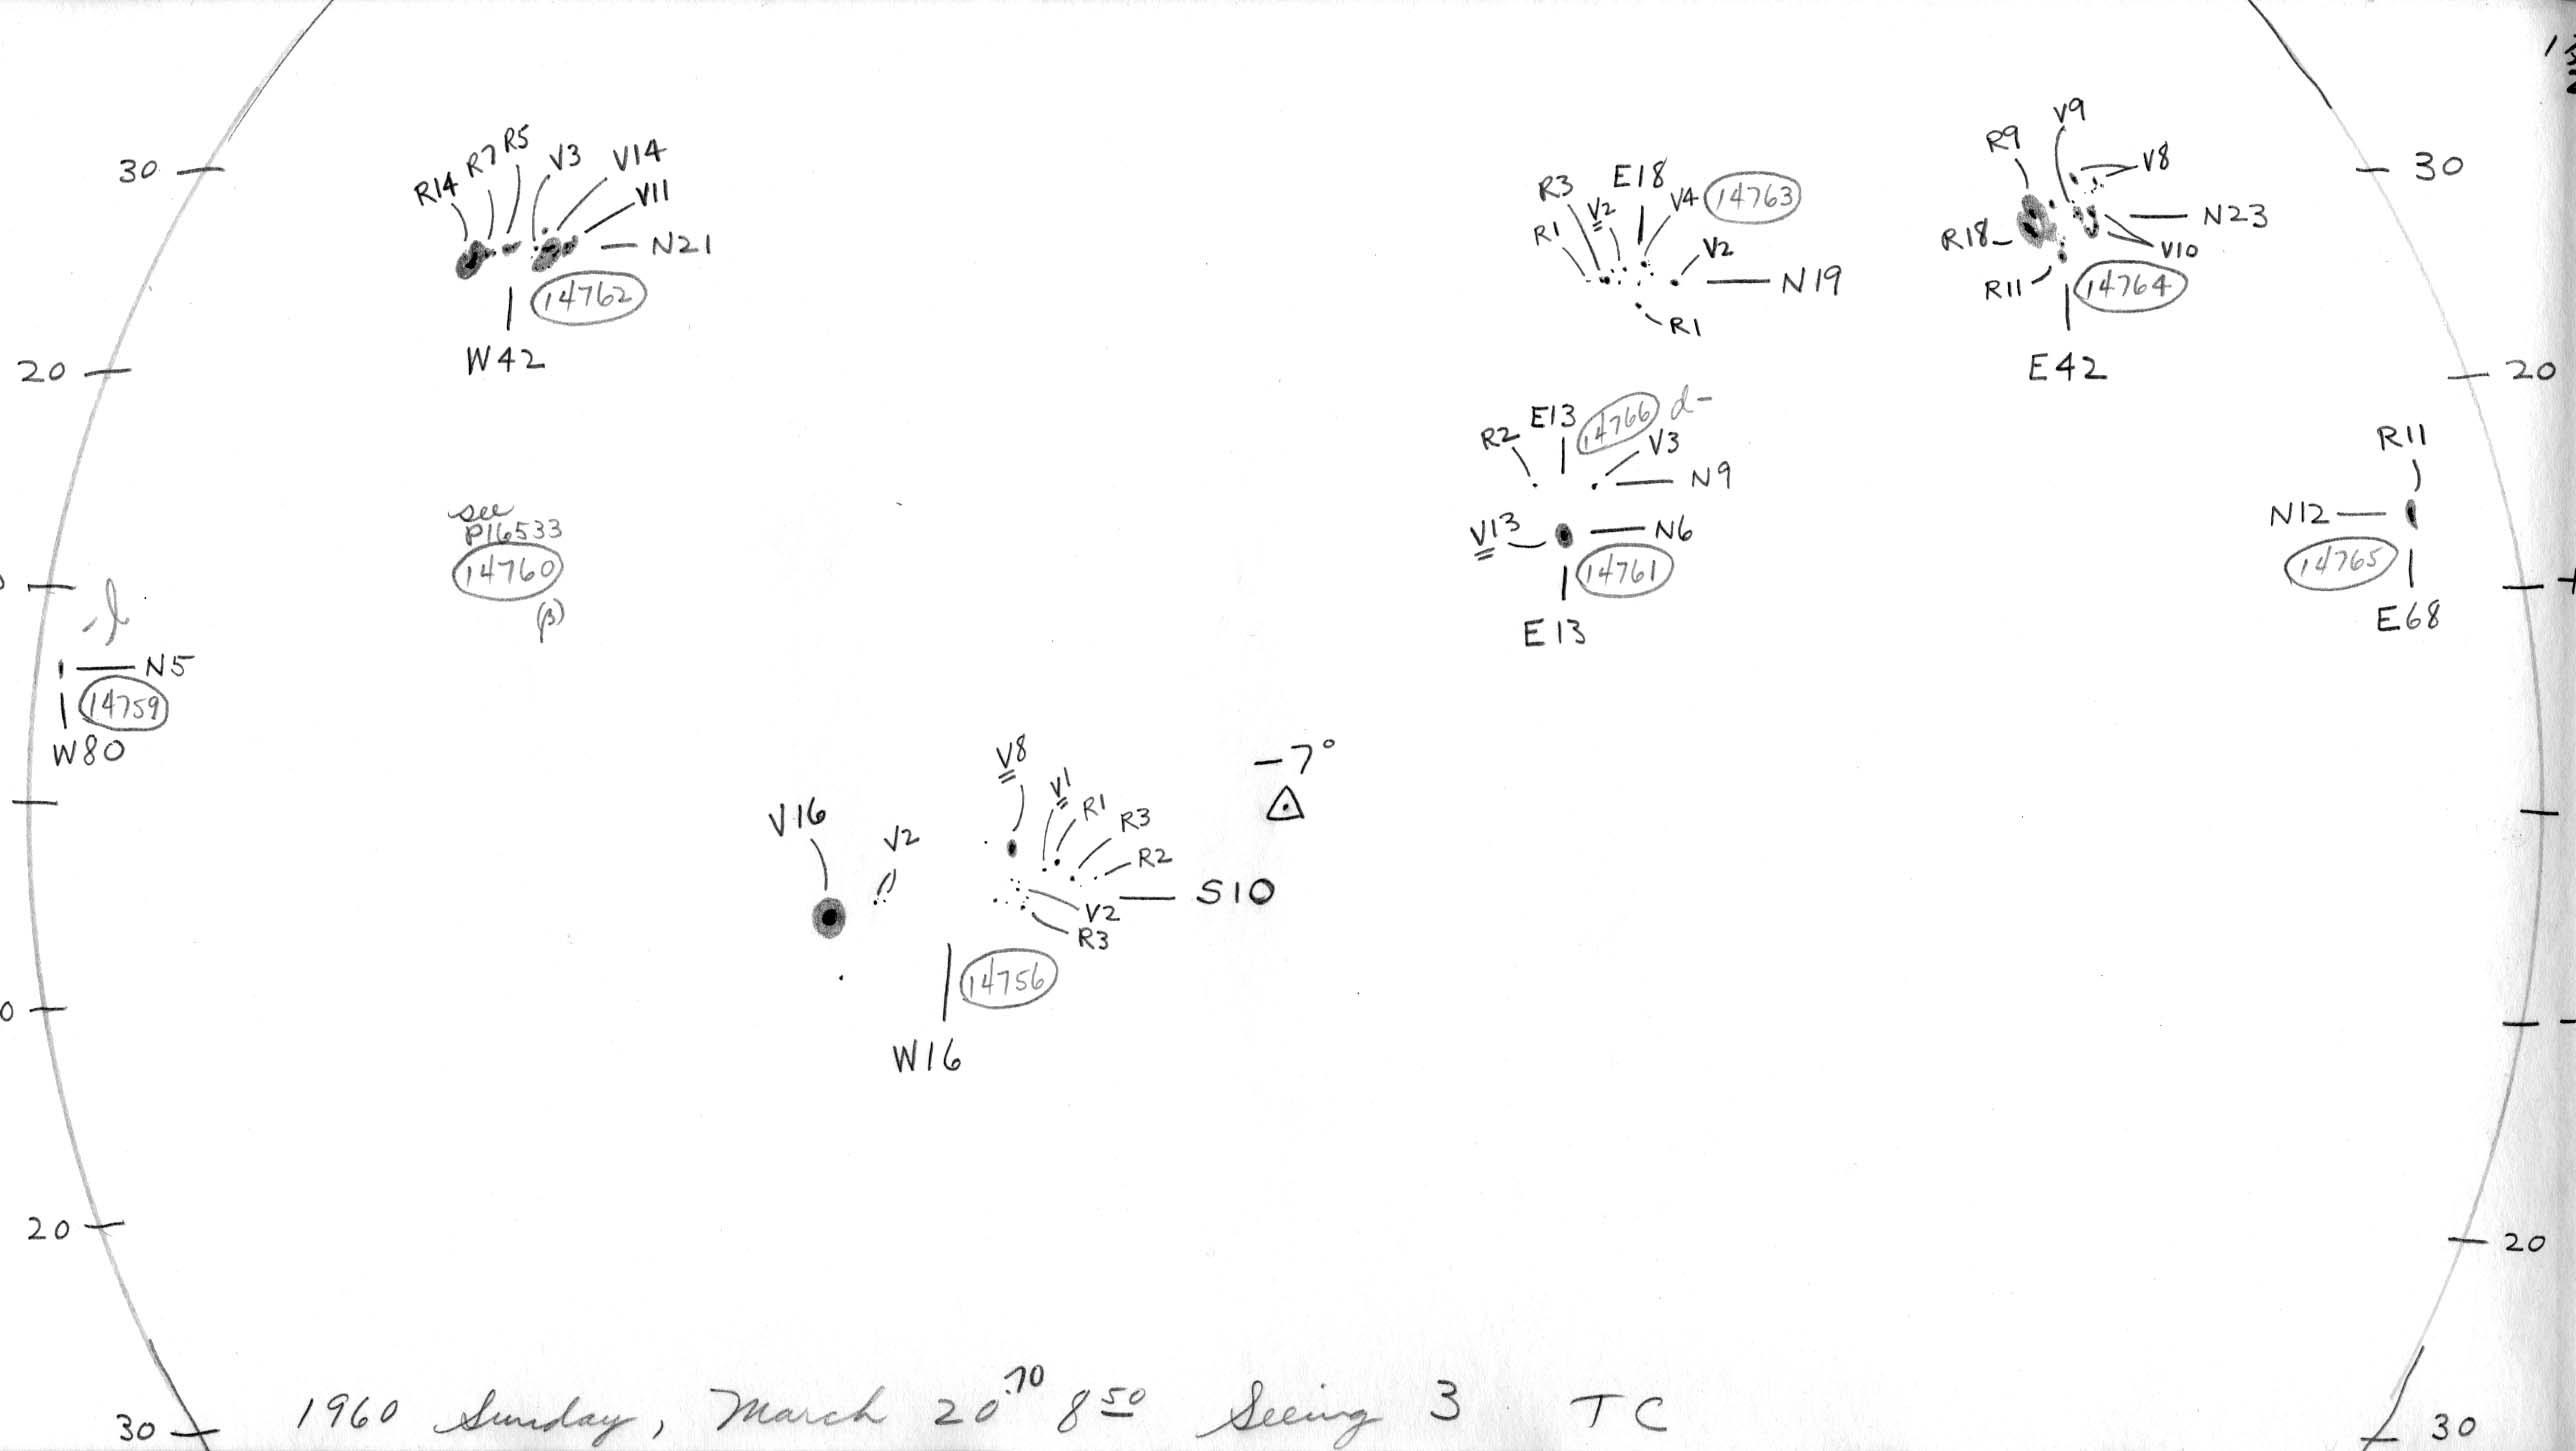 30
R14 R7 R5 V3 V14
V11
N21
14762
W42
20
see
P16533
14760
(β)
N5
14759
W80
R3 V2 E18 V4 14763
R1
V2
N19
R1
R9 V9
V8
R18 N23
V10
R11 14764
E42
30
20
R2 E13 14766 d-
V3
N9
V13 N6
14761
E13
R11
N12
14765
E68
V8
V1
R1
R3
R2
V16
V2
-7°
S10
V2
R3
14756
W16
0
20
20
30
1960 Sunday, March 20.70 8 50 Seeing 3 TC
30